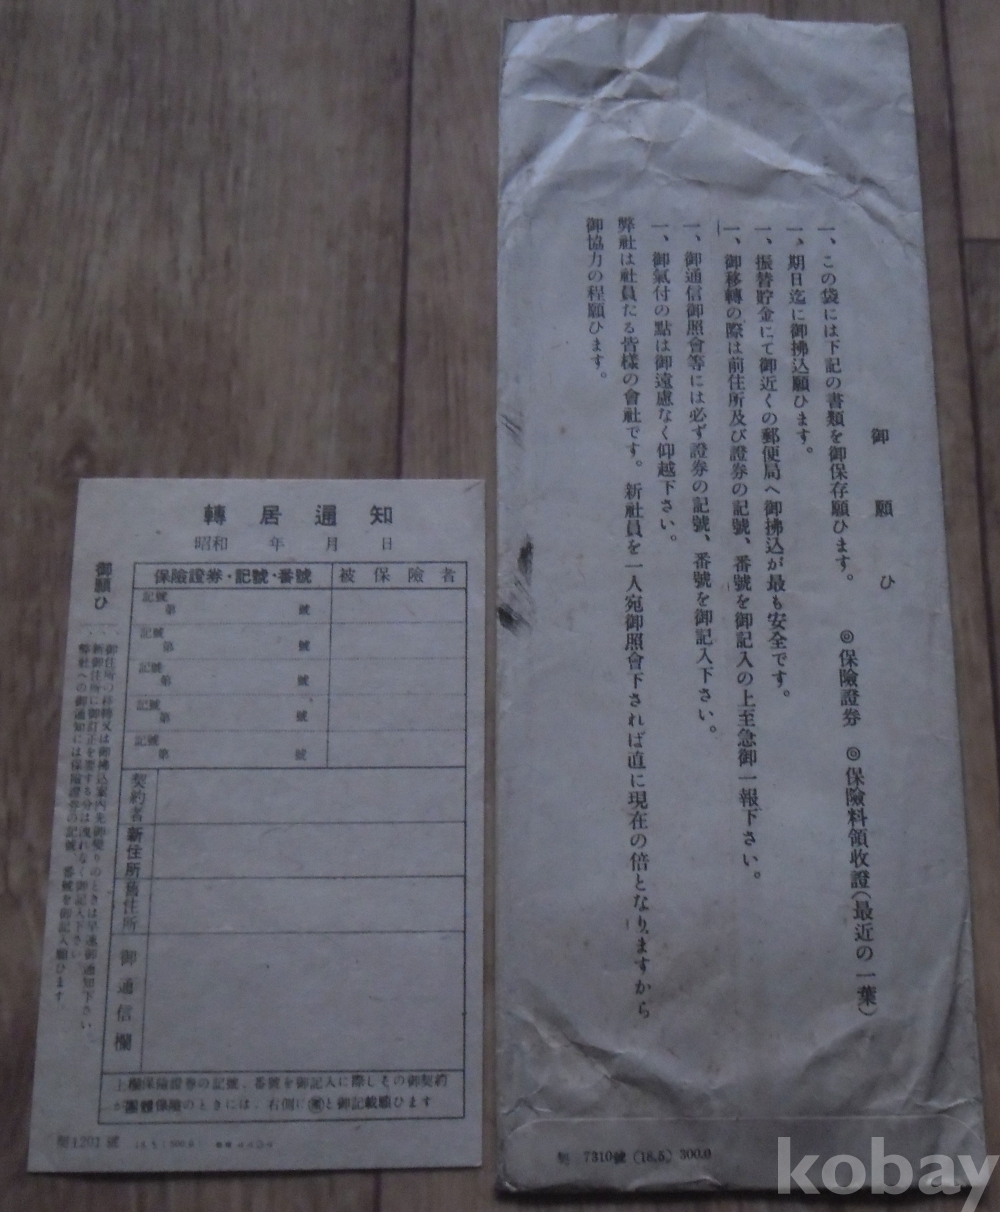 御願ひ
一、この袋には下記の書類を御保存願ひます。 ◎保險證券 ◎保險料領收證(最近の一葉)
一、期日迄に御拂込願ひます。
一、振替貯金にて御近くの郵便局へ御拂込が最も安全です。
一、御移轉の際は前住所及び證券の記號、番號を御記入の上至急御一報下さい。
一、御通信御照會等には必ず證券の記號、番號を御記入下さい。
一、御氣付の點は御遠慮なく仰越下さい。
弊社は社員たる皆樣の會社です。新社員を一人宛御照會下されば直に現在の倍となりますから
御協力の程願ひます。
7310號 (18.5) 300.0
轉居通知
昭和 年 月 日
保險證券・記號・番號 被保險者
記號 第 號
記號 第 號
記號 第 號
記號 第 號
記號 第 號
契約者
新住所
舊住所
御通信欄
上欄保險證券の記號、番號を御記入に際しその御契約
が團體保險のときには、右側に㊥と御記載願ひます
御願ひ
一、御住所の移轉又は御拂込案内先御變りのときは早速御通知下さい
一、新御住所に御訂正を要する分は洩れなく御記入下さい
一、弊社への御通知には保險證券の記號、番號を御記入願ひます
契1201號
kobay